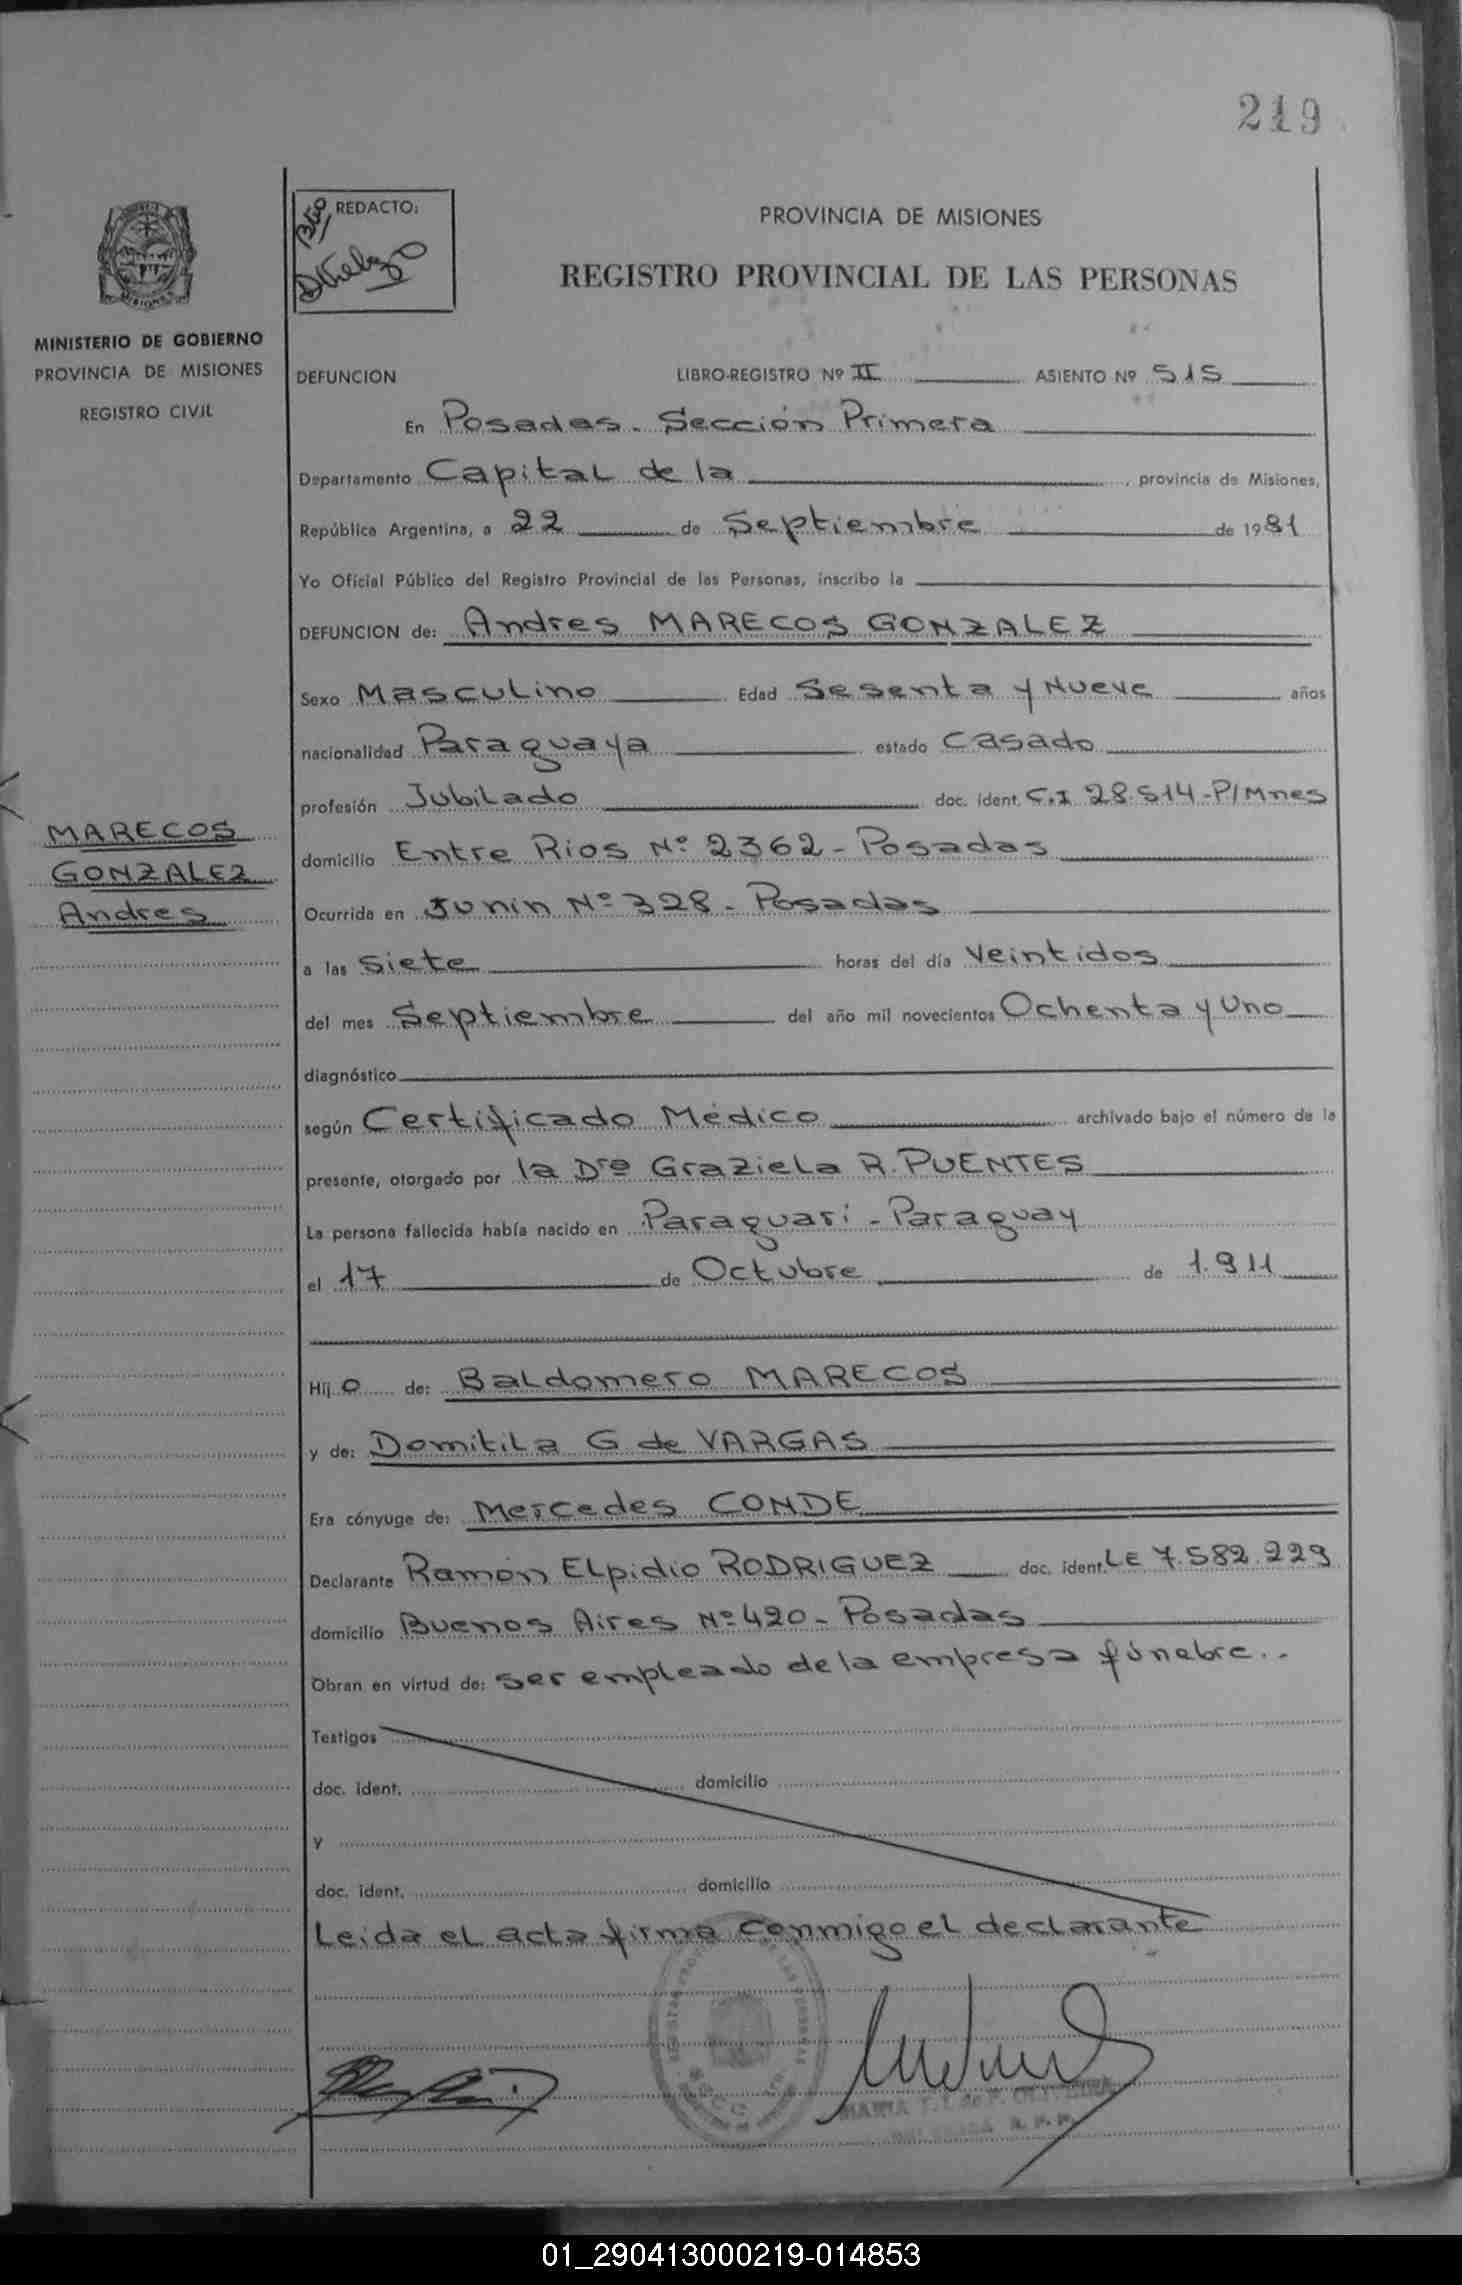 219
REDACTO:
PROVINCIA DE MISIONES
REGISTRO PROVINCIAL DE LAS PERSONAS
MINISTERIO DE GOBIERNO
PROVINCIA DE MISIONES
REGISTRO CIVIL
DEFUNCION LIBRO-REGISTRO Nº II ASIENTO Nº 515
En Posadas. Sección Primera
Departamento Capital de la , provincia de Misiones,
República Argentina, a 22 de Septiembre de 1981
Yo Oficial Público del Registro Provincial de las Personas, inscribo la
DEFUNCION de: Andres MARECOS GONZALEZ
Sexo Masculino Edad Sesenta y Nueve años
nacionalidad Paraguaya estado Casado
profesión Jubilado doc. ident. C.I 28.514-P/Mnes
MARECOS
GONZALEZ
Andres
domicilio Entre Rios Nº 2362 - Posadas
Ocurrida en Junin Nº 328 - Posadas
a las Siete horas del día Veintidos
del mes Septiembre del año mil novecientos Ochenta y Uno
diagnóstico
según Certificado Médico archivado bajo el número de la
presente, otorgado por la Dra Graziela R. PUENTES
La persona fallecida había nacido en Paraguari - Paraguay
el 17 de Octubre de 1.911
Hij o de: Baldomero MARECOS
y de: Domitila G de VARGAS
Era cónyuge de: Mercedes CONDE
Declarante Ramón Elpidio RODRIGUEZ doc. ident. LE 7.582.229
domicilio Buenos Aires Nº 420 - Posadas
Obran en virtud de: ser empleado de la empresa fúnebre..
Testigos
doc. ident. domicilio
y
doc. ident. domicilio
Leida el acta firma conmigo el declarante
01_290413000219-014853